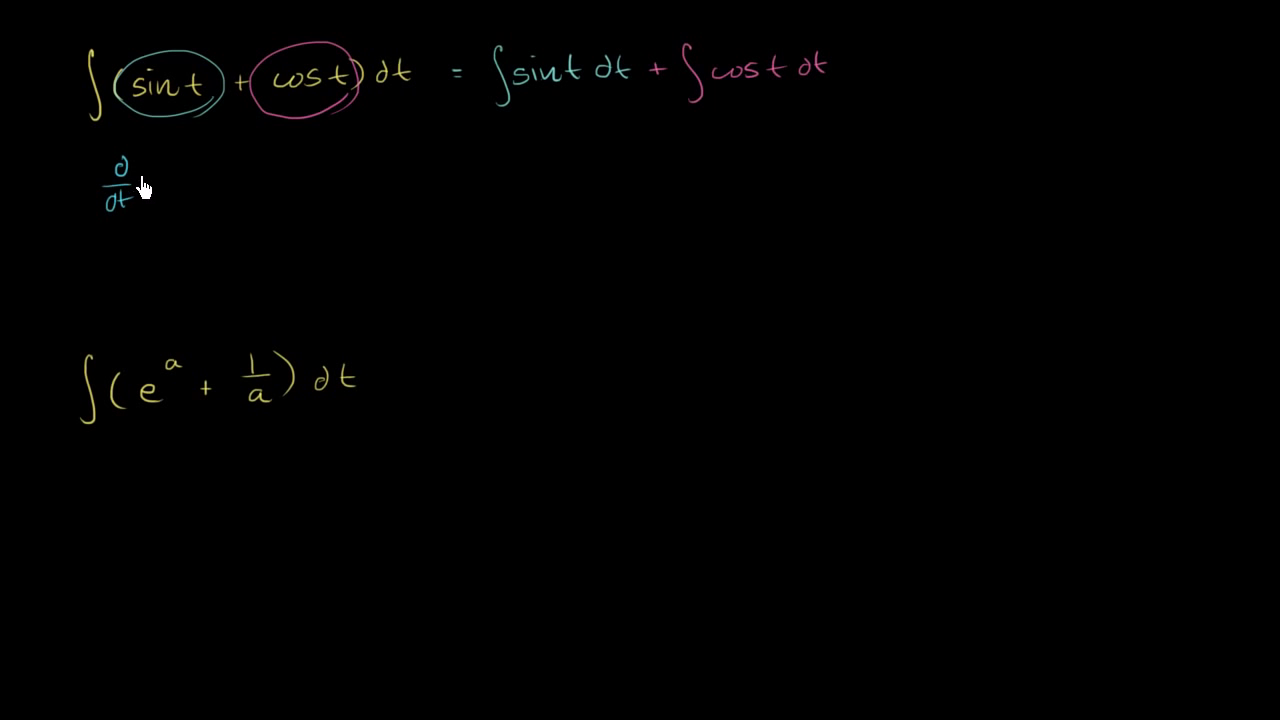 ∫(sin t + cos t) dt = ∫sin t dt + ∫cos t dt
d/dt
∫(e^a + 1/a) dt